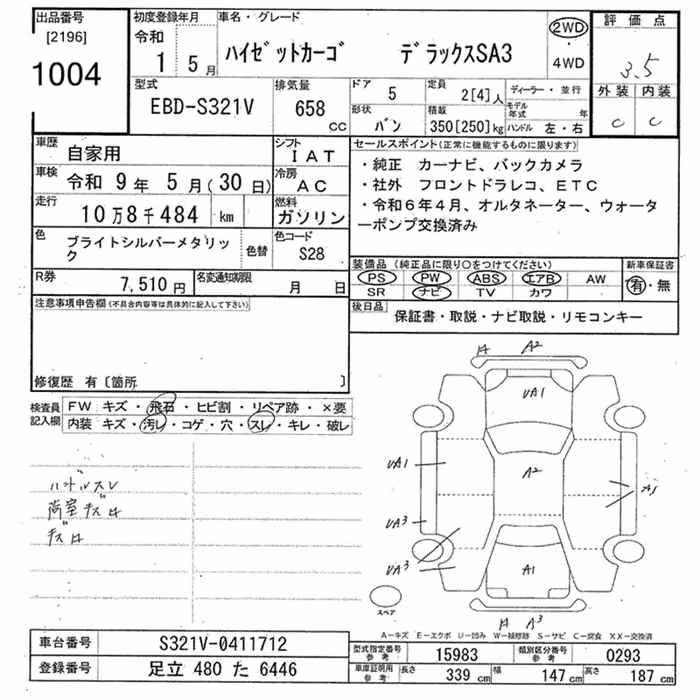 出品番号
[2196]
1004
初度登録年月
令和
1 5月
車名・グレード
ハイゼットカーゴ デラックスSA3
2WD
・
4WD
評価点
3.5
外装 内装
C C
型式
EBD-S321V
排気量
658
CC
ドア
5
定員
2[4]人
形状
バン
積載
350[250]kg
ディーラー・並行
モデル年式 年
ハンドル 左・右
車歴
自家用
シフト
IAT
車検
令和 9年 5月(30日)
冷房
AC
走行
10万8千484 km
燃料
ガソリン
色
ブライトシルバーメタリック
色替
色コード
S28
R券
7,510円
名変通知期限
月 日
セールスポイント(正常に機能するものに限ります)
・純正 カーナビ、バックカメラ
・社外 フロントドラレコ、ETC
・令和6年4月、オルタネーター、ウォータ
ーポンプ交換済み
装備品(純正品に限り○をつけてください)
PS PW ABS エアB AW
SR ナビ TV カワ
新車保証書
有・無
後日品
保証書・取説・ナビ取説・リモコンキー
注意事項申告欄(不具合内容等は具体的に記入して下さい)
修復歴 有〔箇所 〕
検査員
記入欄
FW キズ・飛石・ヒビ割・リペア跡・×要
内装 キズ・汚レ・コゲ・穴・スレ・キレ・破レ
ハンドルスレ
荷室キズ
A2
UA1
A2
UA1
UA3
UA3
A1
A3
スペア
A-キズ E-エクボ U-凹み W-補修跡 S-サビ C-腐食 XX-交換済
車台番号
S321V-0411712
登録番号
足立 480 た 6446
型式指定番号
参考
15983
類別区分番号
参考
0293
車庫証明用
参考
長さ
339 cm
幅
147 cm
高さ
187 cm